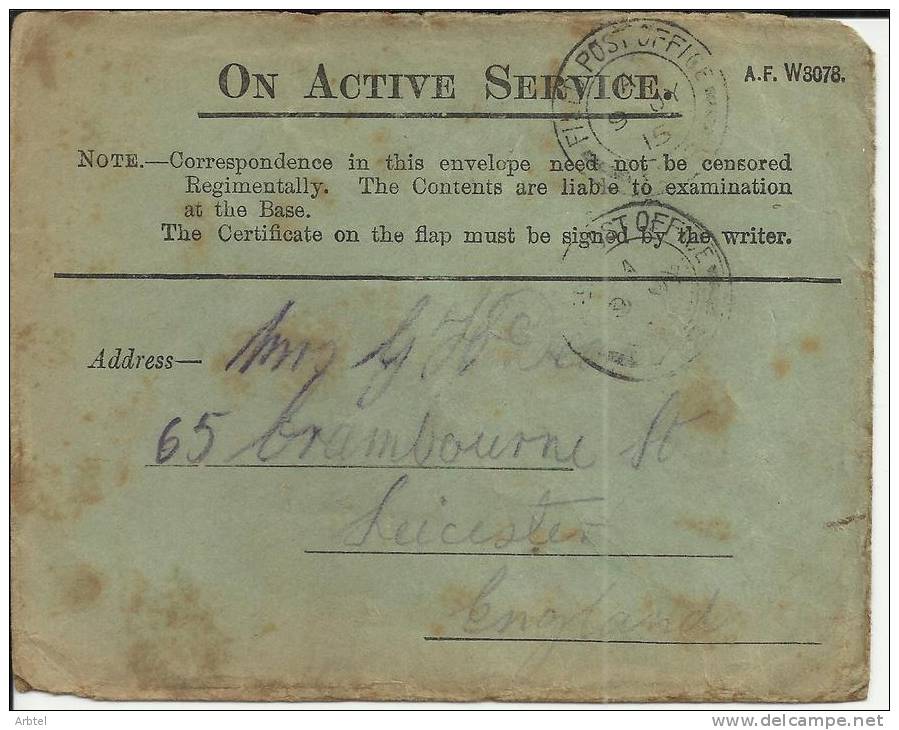 ON ACTIVE SERVICE.
A.F. W3078.
FIELD POST OFFICE
9
15
NOTE.—Correspondence in this envelope need not be censored
Regimentally. The Contents are liable to examination
at the Base.
The Certificate on the flap must be signed by the writer.
POST OFFICE
A
9
Address— Mrs G H
65 Crambourne St
Leicester
England
Arbtel
http://www.delcampe.net